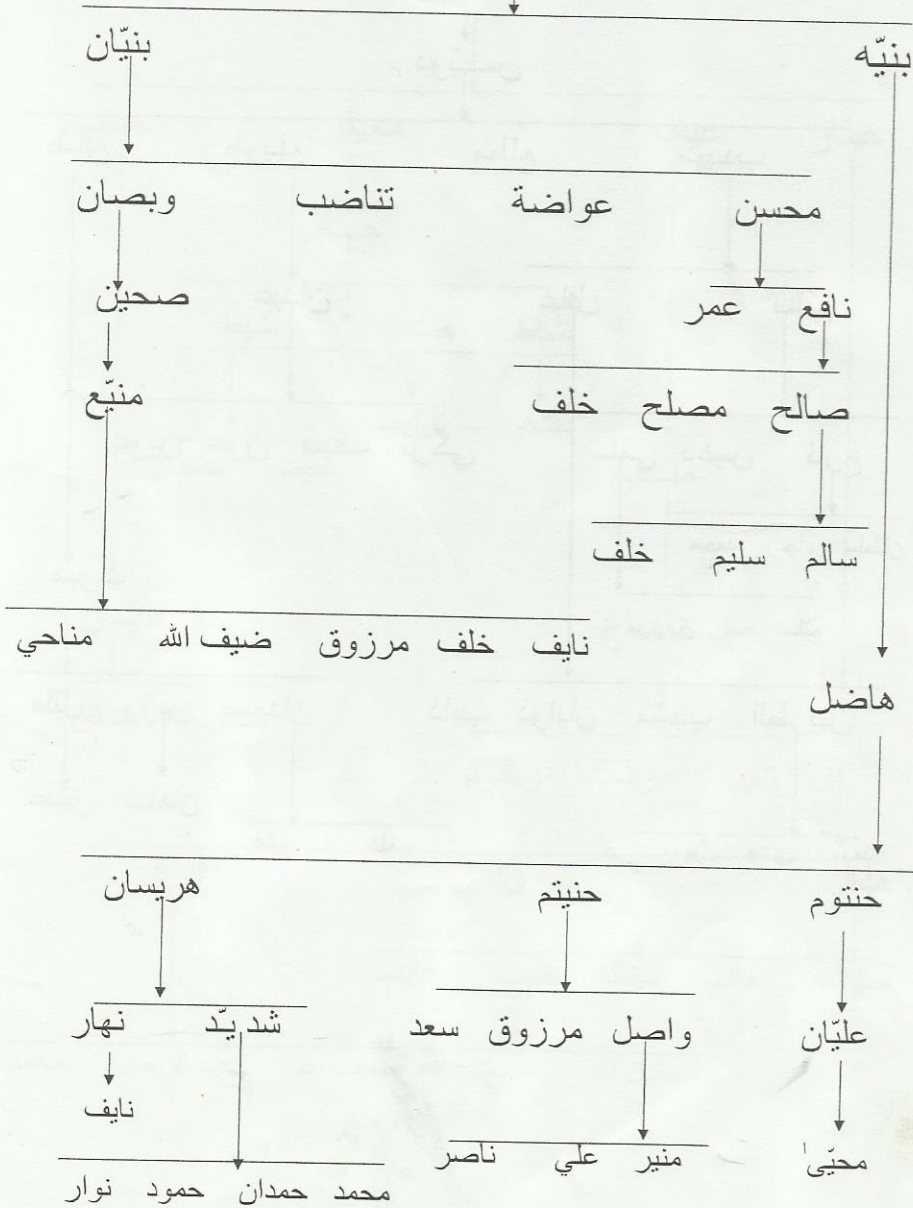 بنيّه بنيّان
محسن عواضة تناضب وبصان
نافع عمر صحين
صالح مصلح خلف منيّع
سالم سليم خلف
نايف خلف مرزوق ضيف الله مناحي
هاضل
حنتوم حنيتم هريسان
عليّان واصل مرزوق سعد شديّد نهار
نايف
محيّىٰ منير علي ناصر
محمد حمدان حمود نوار